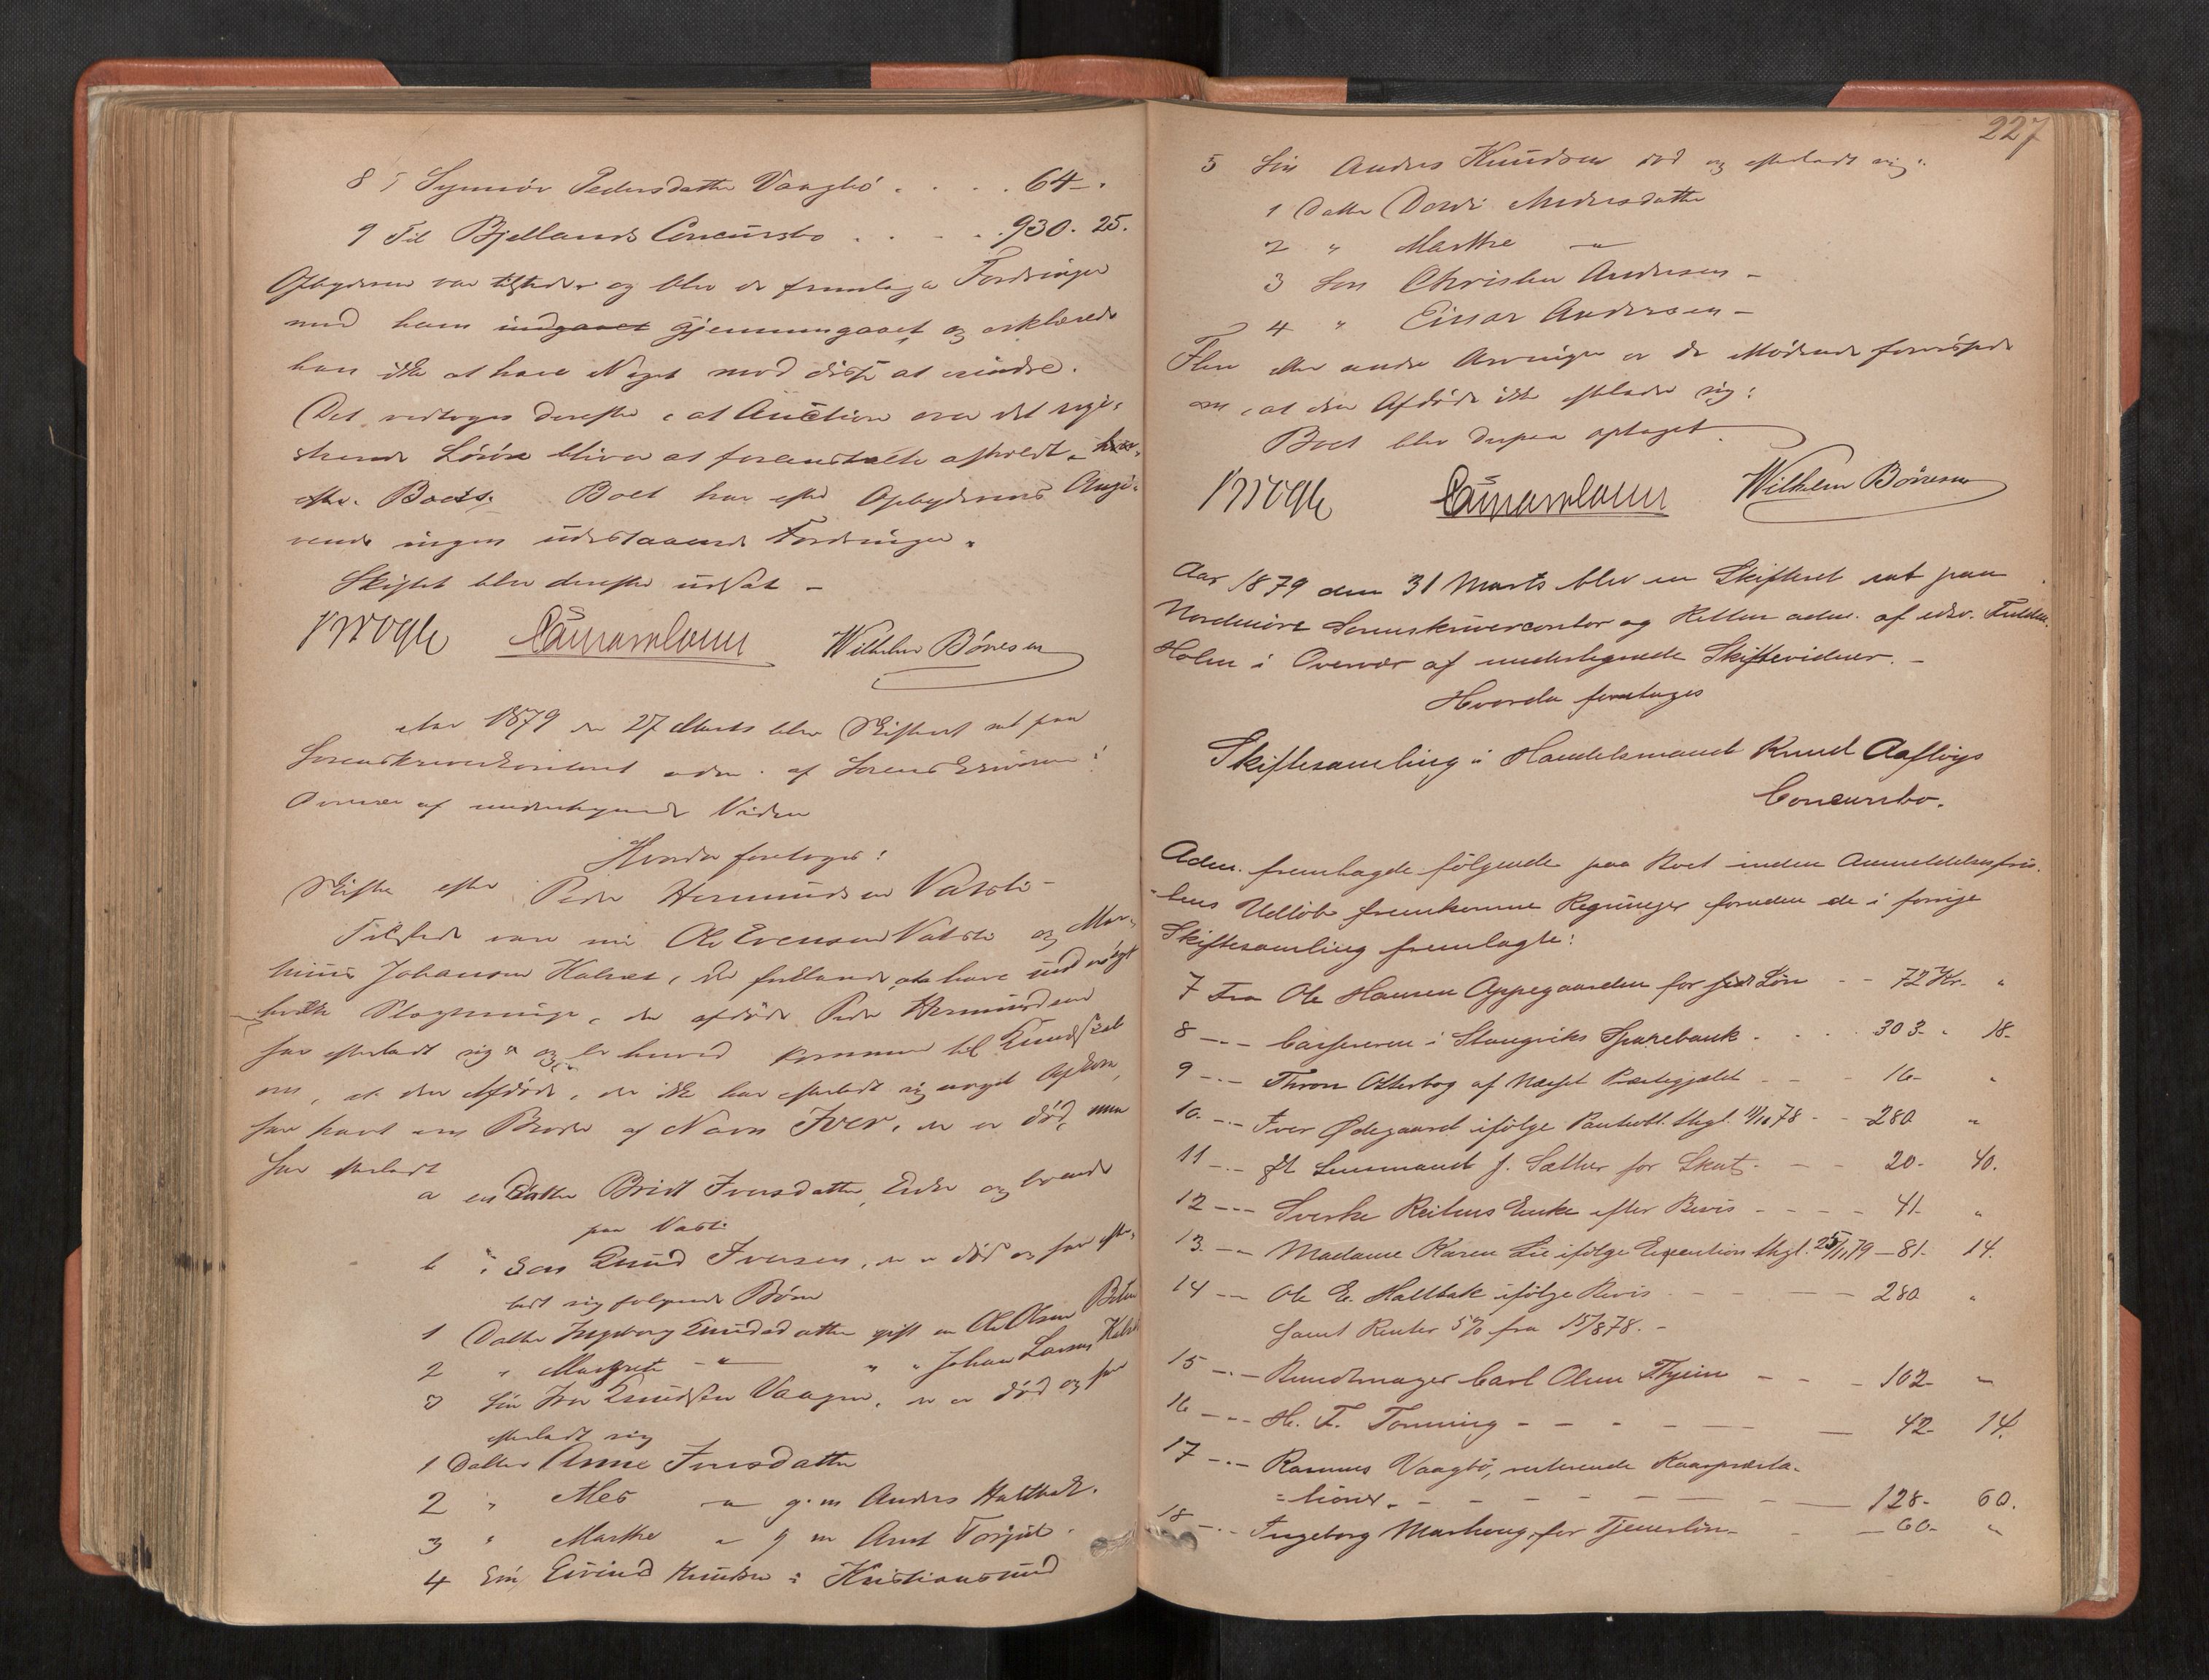 8 " Synnøv Pedersdatter Vaagbø . . . . 64 - .
9 Til Bjellands Concursbo . . . . 930. 25.
Opbyderen var tilstede og blev de fremlagte Fordringer
med ham indgaaet gjennemgaaet og erklærede
han ikke at have Noget mod disse at erindre.
Det vedtoges derefter, at Auction over det regi-
strerede Løsøre bliver at foranstalte afholdt
efter. Boets. Boet har efter Opbyderens Angi-
vende ingen udestaaende Fordringer.
Skiftet blev derefter udsat -
Krogh Wilhelm Bónesen
Aar 1879 den 27 Marts blev Skifteret sat paa
Sorenskriverkontoret adm. af Sorenskriveren i
Overvær af undertegnede Vidner
Hvorda foretoges:
Skifte efter Peder Hermundsen Vatsli -
Tilstede vare nu Ole Evensen Vatsli og Mar-
Johansen Halset, der at have
hvilke Slægtninge, den afdøde Peder Hermundsen
har efterladt sig og er herved kommen til Kundskab
om, at den Afdøde, der ikke har efterladt sig noget Afkom,
har havt en Broder af Navn Iver, der er død, men
har efterladt
a en Datter Brit Iversdatter, Enke og boende
paa Vatsli
b " Søn Knud Iversen, der er død og har efter-
ladt sig følgende Børn
1 Datter Ingeborg Knudsdatter gift m Ole Olsen
2 " Margrete - " - " " Johan Larsen
3 Søn Iver Knudsen Vaagen, der er død og har
efterladt sig
1 Datter Anne Iversdatter
2 " Mes - " - g. m Anders Haltbak.
3 " Marthe " g m Arnt
4 Søn Eivind Knudsen i Kristiansund
227
5 Søn Anders Knudsen død og efterladt sig:
1 Datter Dordi Andersdatter
2 " Marthe - " -
3 Søn Christen Andersen -
4 " Einar Andersen -
Flere eller andre Arvinger er de Mødende forvissede
om, at den Afdøde ikke efterlader sig:
Boet blev derpaa optaget.
Krogh Wilhelm Bónesen
Aar 1879 den 31 Marts blev en Skifteret sat paa
Nordmøre Sorenskrivercontor og Retten adm. af edsv. Fuldm.
Holm i Overvær af undertegnede Skiftevidner. -
Hvorda foretoges
Skiftesamling i Handelsmand Knud Aafløys
Concursbo.
Adm. fremlagde følgende paa Boet inden Anmeldelsesfris-
tens Udløb fremkomne Regninger foruden de i forrige
Skiftesamling fremlagte:
7 Fra Ole Hansen Oppegaarden for Løn - - 72 Kr. "
8 - - - Casfereren i Stangviks Sparebank . . . 303. " 18.
9 - - - Thron Otterbog af Næsset Præstegjæld - - - 16 - "
10. - - - Iver Ødegaard ifølge Pantobl. thgl. 11/10 78 - - 280 "
11 - - - fh Lensmand J. Sæther for Skat - - - 20. 40.
12 - - - Sverke Reitens Enke efter Bevis - - - - 41. "
13. - - Madame Karen Lie ifølge Execution thgl. 25/1 79 - 81. 14.
14 - - Ole E. Haltbak ifølge Bevis . - - - 280 "
samt Renter 5 % fra 15/8 78. -
15 - - - Bundtmager Carl Olsen Thjeim - - - 102 - "
16 - - - H. F. Tonning - - - - - - 42 - 14.
17 - - - Rasmus Vaagbø, resterende Kaarpræsta-
= tioner. - - - - - - 128 - 60.
18 - - - Ingeborg Marhaug, for Tjenerløn - - 60 - "